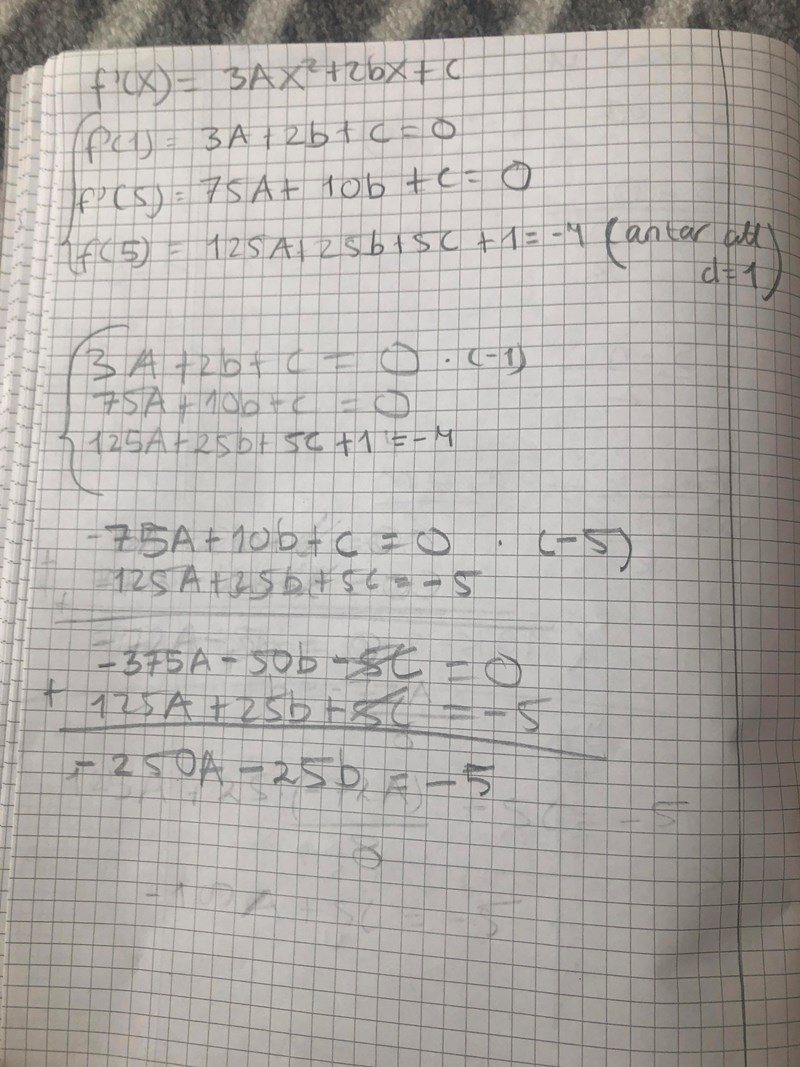 f'(x) = 3Ax²+2bx+c
f'(1) = 3A+2b+c=0
f'(5) = 75A+ 10b +c= 0
f(5) = 125A+25b+5c +1=-4 (antar att
d=1)
3A +2b+ c = 0 · (-1)
75A+10b+c = 0
125A+25b+5c+1=-4
-75A+10b+c =0 · (-5)
125A+25b+5c=-5
-375A-50b-5c =0
+ 125A+25b+5c =-5
-250A-25b = -5